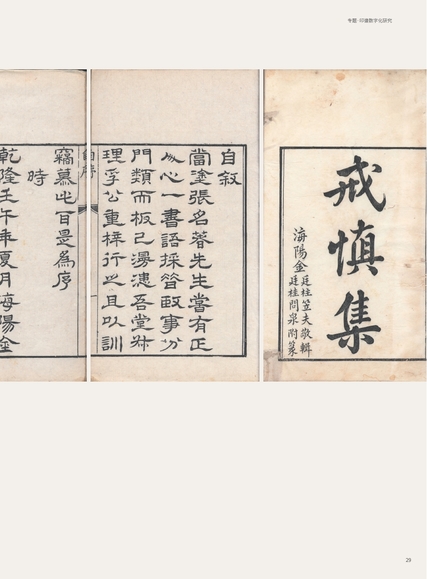 专题·印谱数字化研究
戒慎集
海陽金廷桂笠夫敬輯
廷桂問泉附篆
自叙
當塗張名蓉先生嘗有正
心一書語採皆政事分
門類而板已漫漶吾堂叔
理孚公重梓行之且以訓
自序
竊慕此旨是為序
時
乾隆壬午年夏月海陽金
29